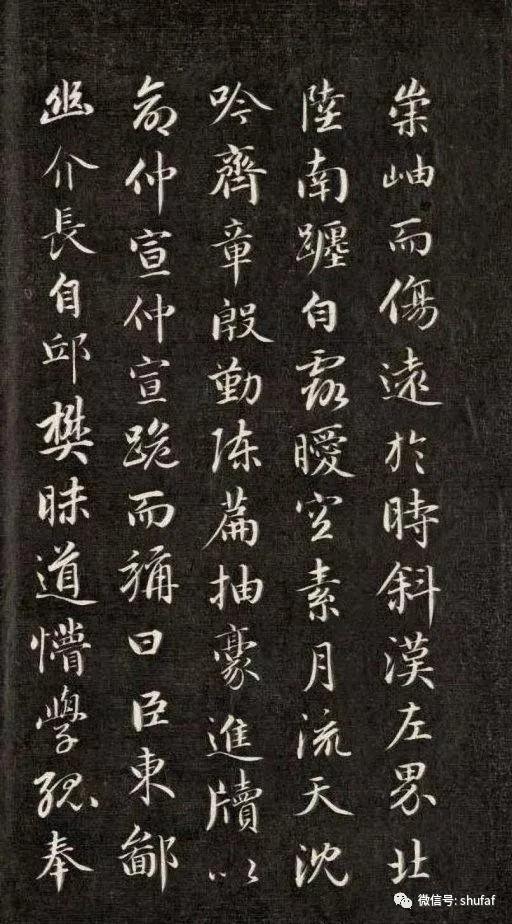 崇岫而傷遠於時斜漢左界北
陸南躔白露曖空素月流天沈
吟齊章殷勤陳篇抽豪進牘以
命仲宣仲宣跪而稱曰臣東鄙
幽介長自邱樊昧道懵學孤奉
微信号: shufaf